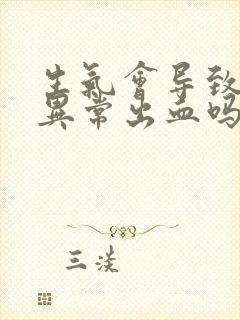 生氣會导致
異常出血吗
三淡